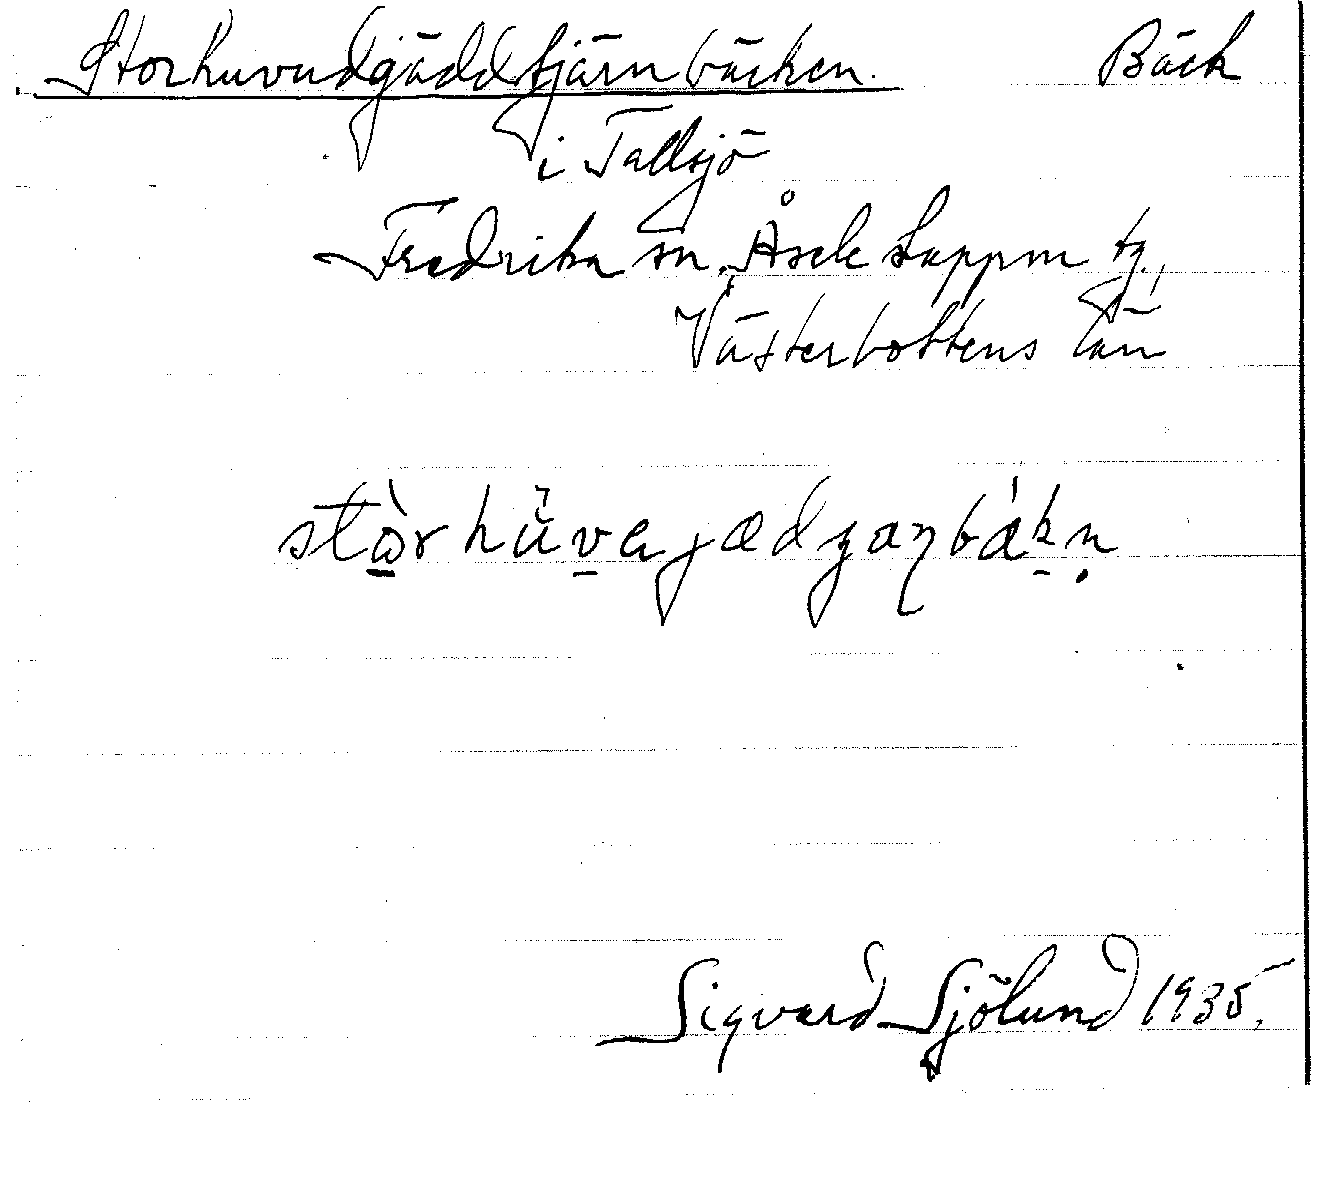 Storhuvudgäddtjärnbäcken. Bäck
i Tallsjö
Fredrika sn, Åsele Lappm tg,
Västerbottens län
Sigvard Sjölund 1935.